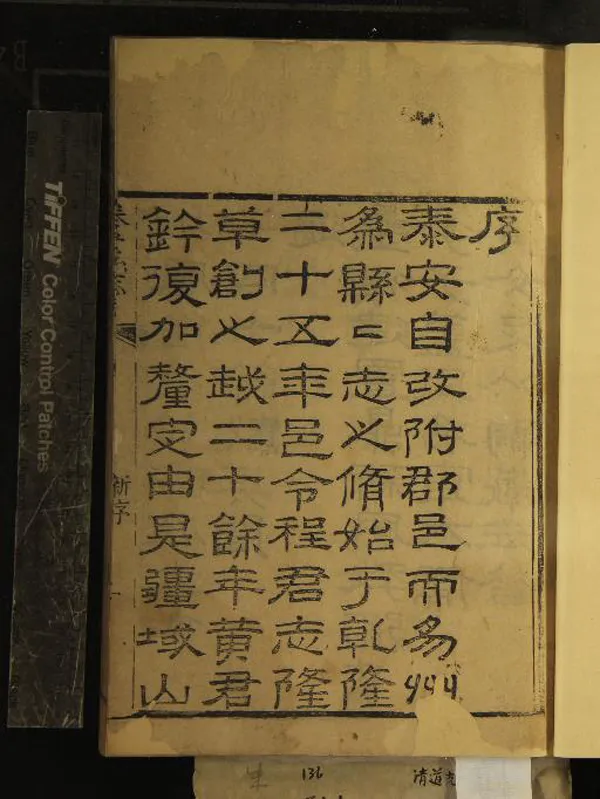 序
泰安自改附郡邑而易州
為縣二志之脩始于乾隆
二十五年邑令程君志隆
草創之越二十餘年黃君
鈐復加釐定由是疆域山
新序
TIFFEN Color Control Patches
136
清道